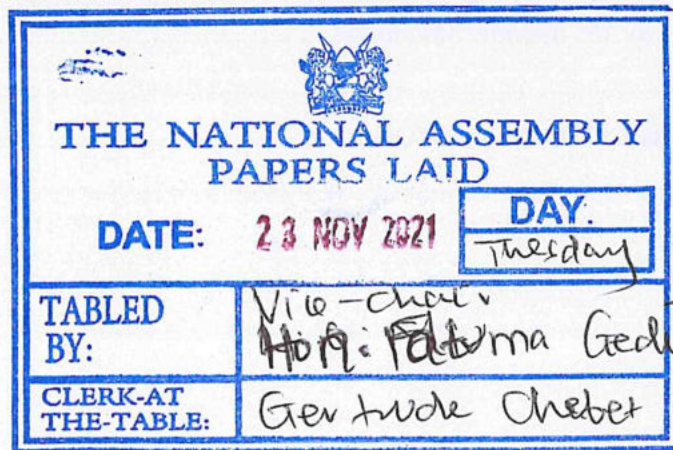 THE NATIONAL ASSEMBLY
PAPERS LAID
DATE: 23 NOV 2021
DAY:
Tuesday
TABLED BY:
Vice-chair
Hon. Fatuma Gedi
CLERK-AT THE-TABLE:
Gertrude Chebet